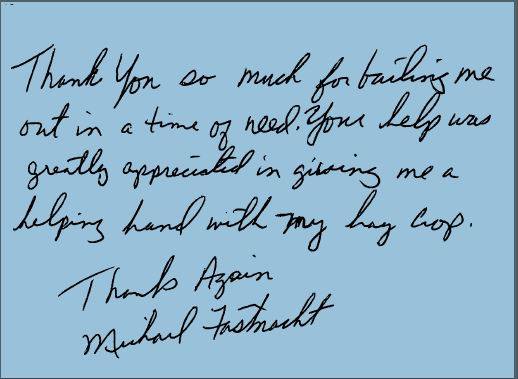 Thank You so much for bailing me
out in a time of need. Your help was
greatly appreciated in giving me a
helping hand with my hay crop.
Thanks Again
Michael Fastnacht